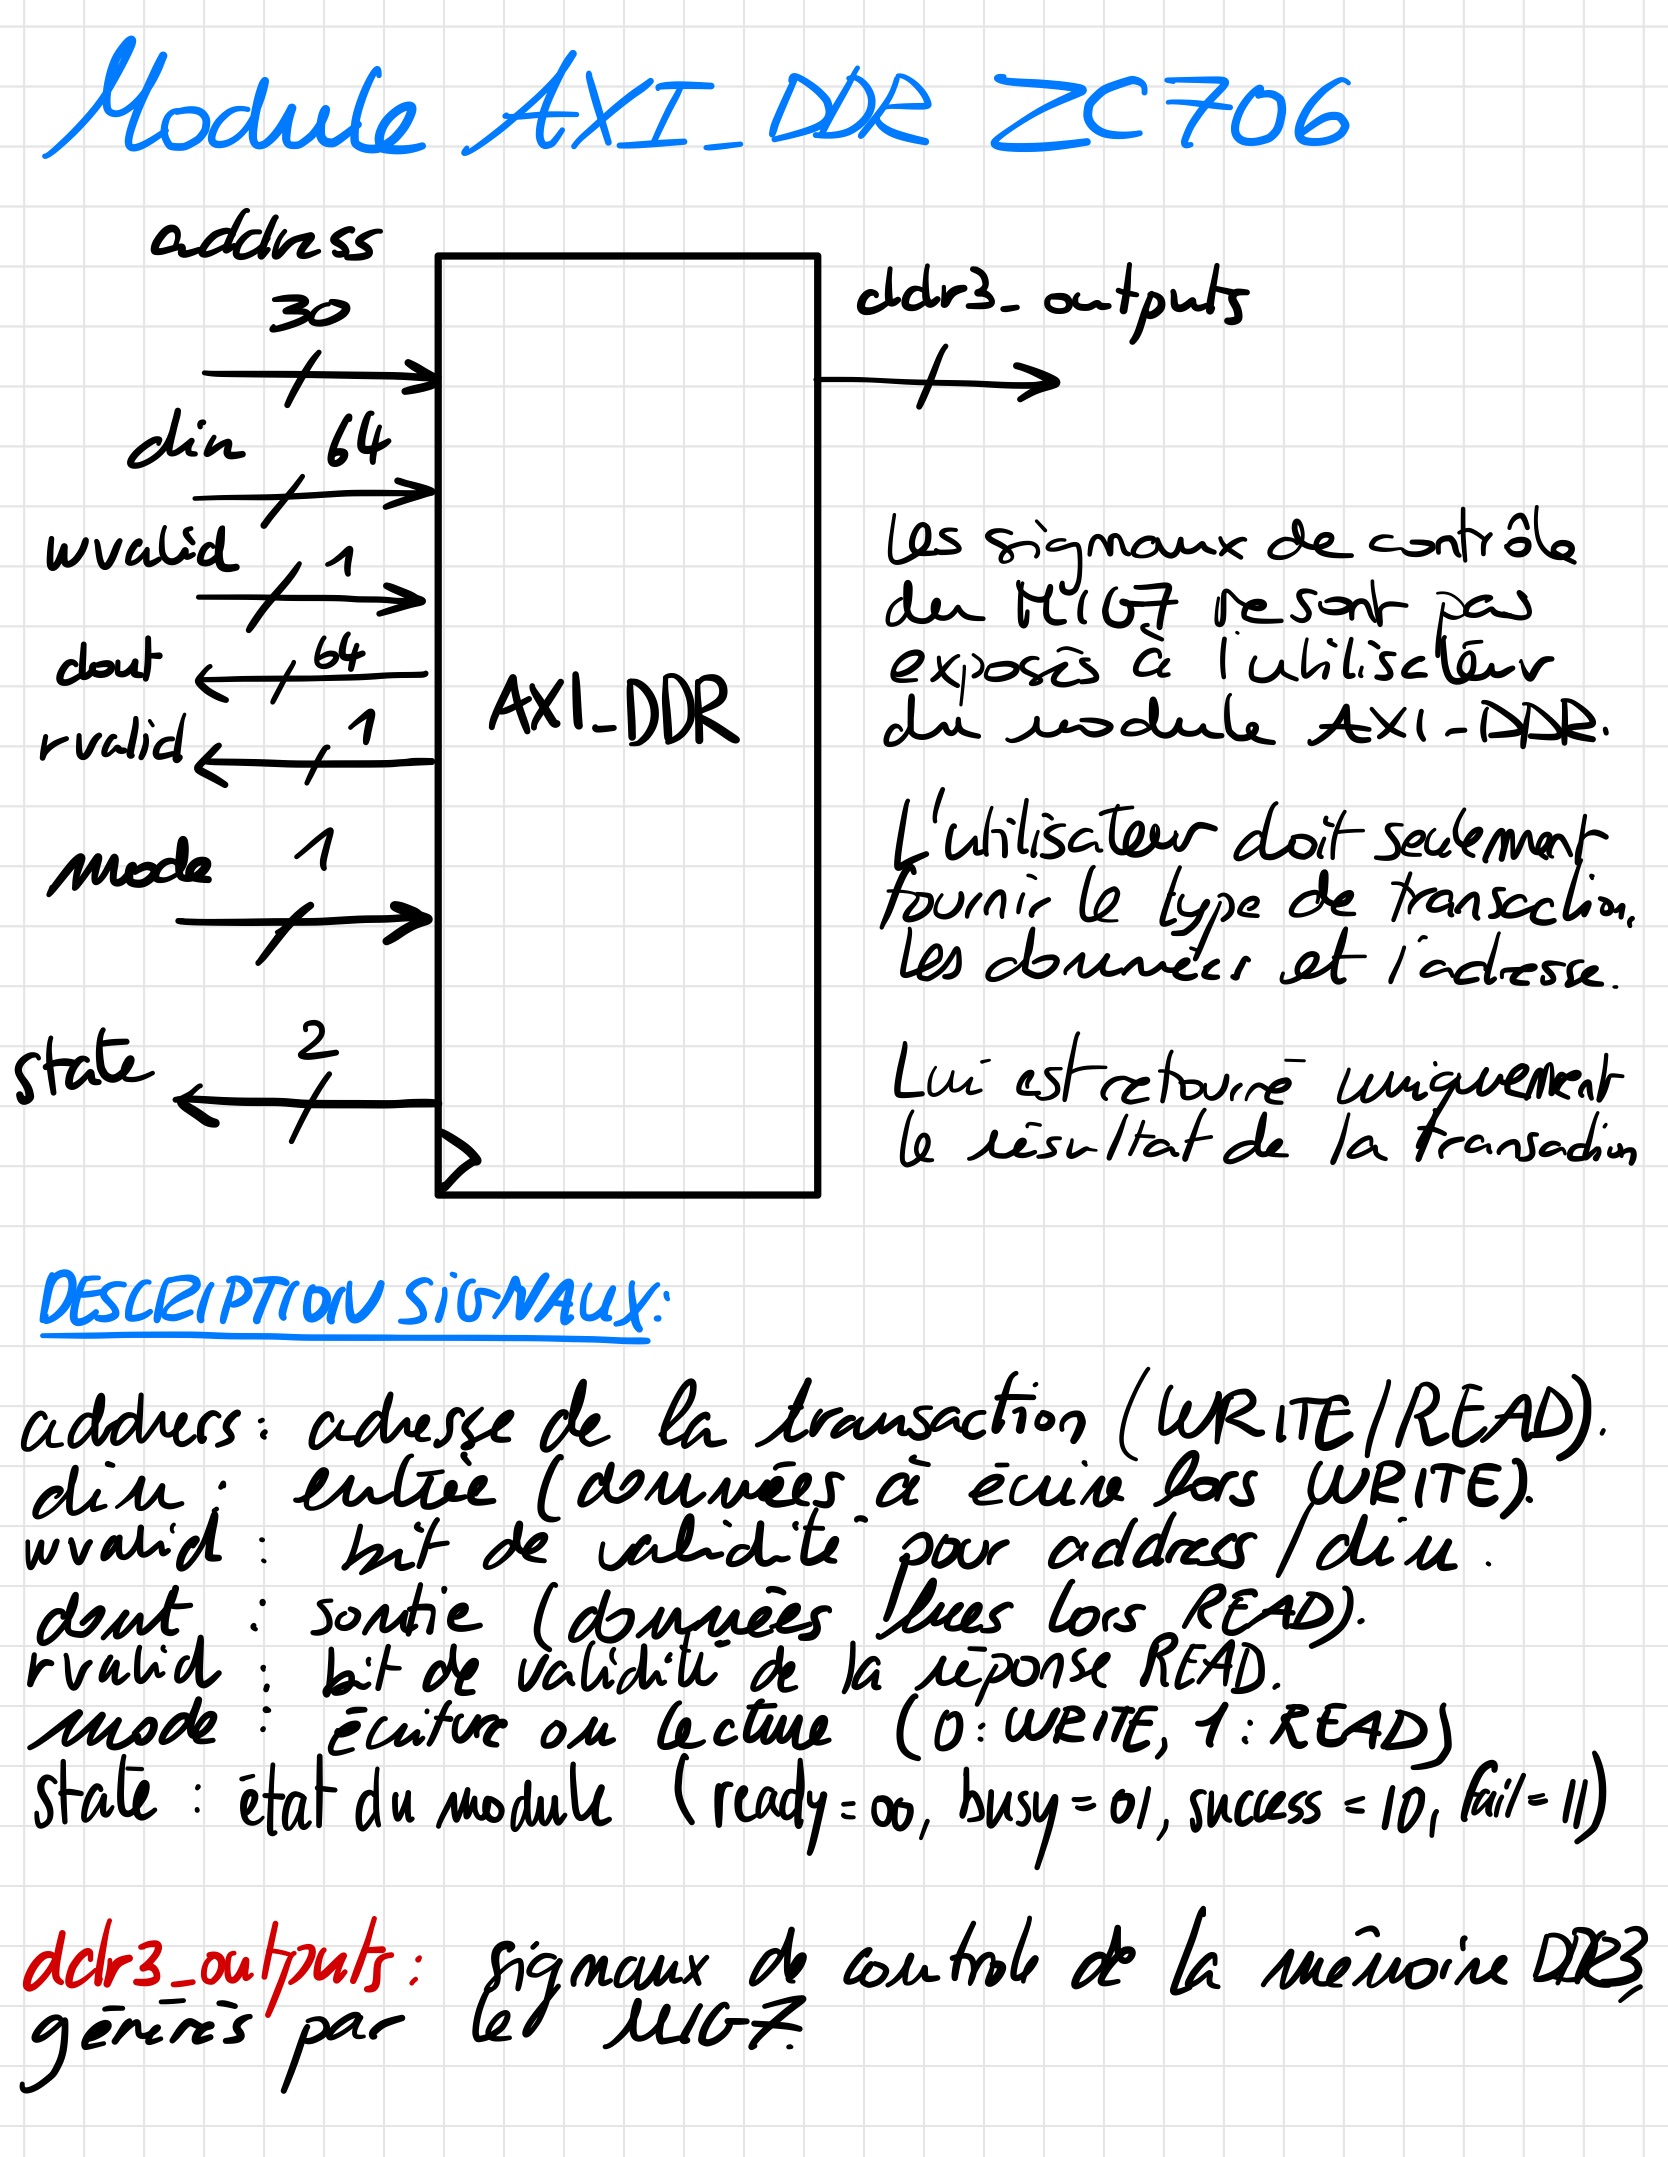 Module AXI_DDR ZC706
address
30
din 64
wvalid 1
dout 64
rvalid 1
mode 1
state 2
AXI_DDR
ddr3_outputs
Les signaux de contrôle
du MIG7 ne sont pas
exposés à l'utilisateur
du module AXI-DDR.
L'utilisateur doit seulement
fournir le type de transaction,
les données et l'adresse.
Lui est retourné uniquement
le résultat de la transaction
DESCRIPTION SIGNAUX:
address : adresse de la transaction (WRITE/READ).
din : entrée (données à écrire lors WRITE).
wvalid : bit de validité pour address / din.
dout : sortie (données lues lors READ).
rvalid : bit de validité de la réponse READ.
mode : écriture ou lecture (0: WRITE, 1: READ)
state : état du module (ready=00, busy=01, success=10, fail=11)
ddr3_outputs: signaux de controle de la mémoire DDR3
générés par le MIG7.